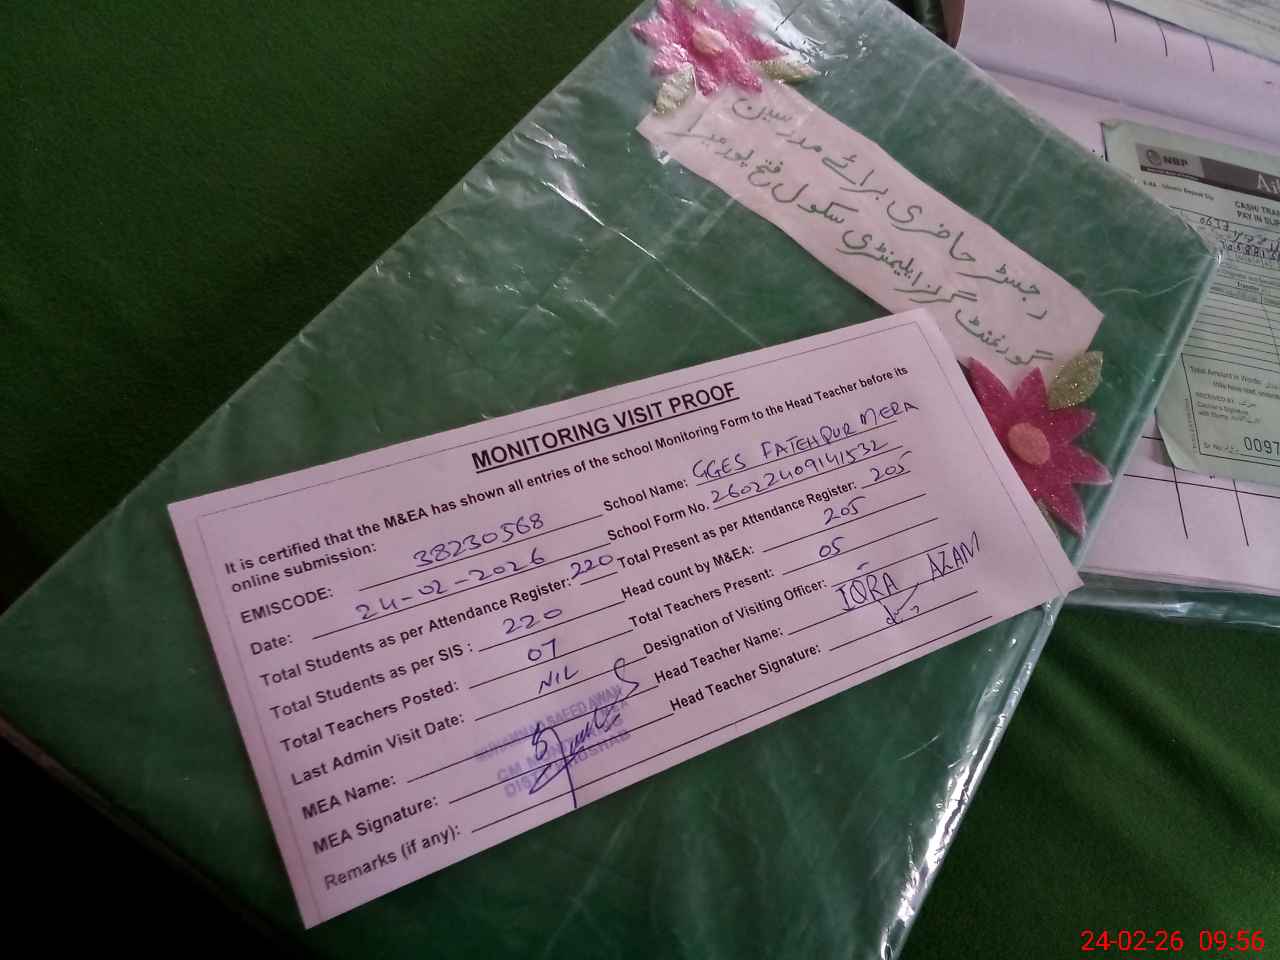 رجسٹر حاضری برائے مدرسین
گورنمنٹ گرلز ایلیمنٹری سکول فتح پور میرا
MONITORING VISIT PROOF
It is certified that the M&EA has shown all entries of the school Monitoring Form to the Head Teacher before its
online submission:
EMISCODE: 38230568 School Name: GGES FATEHPUR MERA
Date: 24-02-2026 School Form No. 26022409141532
Total Students as per Attendance Register: 220 Total Present as per Attendance Register: 205
Total Students as per SIS : 220 Head count by M&EA: 205
Total Teachers Posted: 07 Total Teachers Present: 05
Last Admin Visit Date: NIL Designation of Visiting Officer: -
MEA Name: Head Teacher Name: IQRA AZAM
MEA Signature: Head Teacher Signature:
Remarks (if any):
MUHAMMAD SAEED AWAN
DISTT KHUSHAB
NBP
CASH/ TRA
PAY IN SLI
Total Amount in Words:
RECEIVED BY
Cashier's Signature
with Stamp
Sr.No 0097
24-02-26 09:56